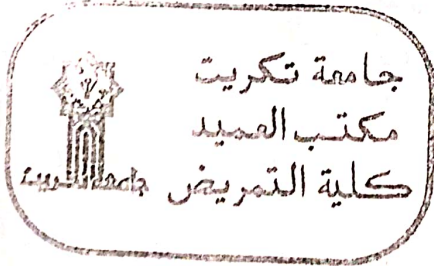 جامعة تكريت
مكتب العميد
كلية التمريض
جامعة تكريت